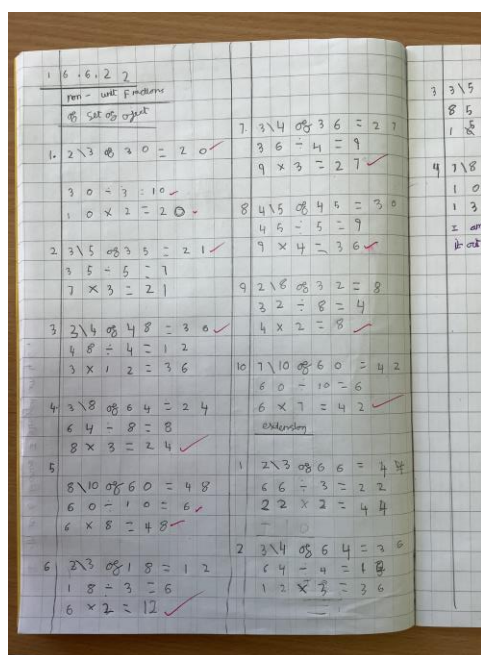 16.6.22
non-unit fractions
of set of oject
1. 2\3 of 30 = 20
30 ÷ 3 = 10
10 x 2 = 20
2 3\5 of 35 = 21
35 ÷ 5 = 7
7 x 3 = 21
3 3\4 of 48 = 30
48 ÷ 4 = 12
3 x 12 = 36
4. 3\8 of 64 = 24
64 ÷ 8 = 8
8 x 3 = 24
5
8\10 of 60 = 48
60 ÷ 10 = 6
6 x 8 = 48
6 2\3 of 18 = 12
18 ÷ 3 = 6
6 x 2 = 12
7. 3\4 of 36 = 27
36 ÷ 4 = 9
9 x 3 = 27
8 4\5 of 45 = 30
45 ÷ 5 = 9
9 x 4 = 36
9 2\8 of 32 = 8
32 ÷ 8 = 4
4 x 2 = 8
10 7\10 of 60 = 42
60 ÷ 10 = 6
6 x 7 = 42
extension
1 2\3 of 66 = 44
66 ÷ 3 = 22
22 x 2 = 44
2 3\4 of 64 = 36
64 ÷ 4 = 12
12 x 3 = 36
3 3\5
85
1
4 7\8
10
13
I am
it out